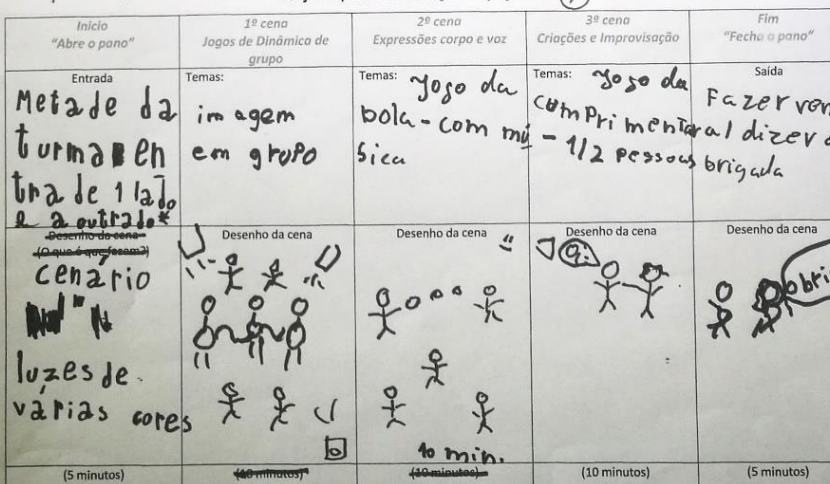 Início
"Abre o pano"
1º cena
Jogos de Dinâmica de
grupo
2º cena
Expressões corpo e voz
3º cena
Criações e Improvisação
Fim
"Fecha o pano"
Entrada
Metade da
turma en
tra de 1 lado
e a outra do*
Temas:
imagem
em grupo
Temas: Jogo da
bola - com mú
sica
Temas: Jogo da
comprimentar
- 1/2 pessoas
Saída
Fazer
al dizer
brigada
Desenho da cena
(O que é que fazem?)
cenário
luzes de
várias cores
Desenho da cena
Desenho da cena
10 min.
Desenho da cena
Desenho da cena
obri
(5 minutos)
(10 minutos)
(10 minutos)
(10 minutos)
(5 minutos)